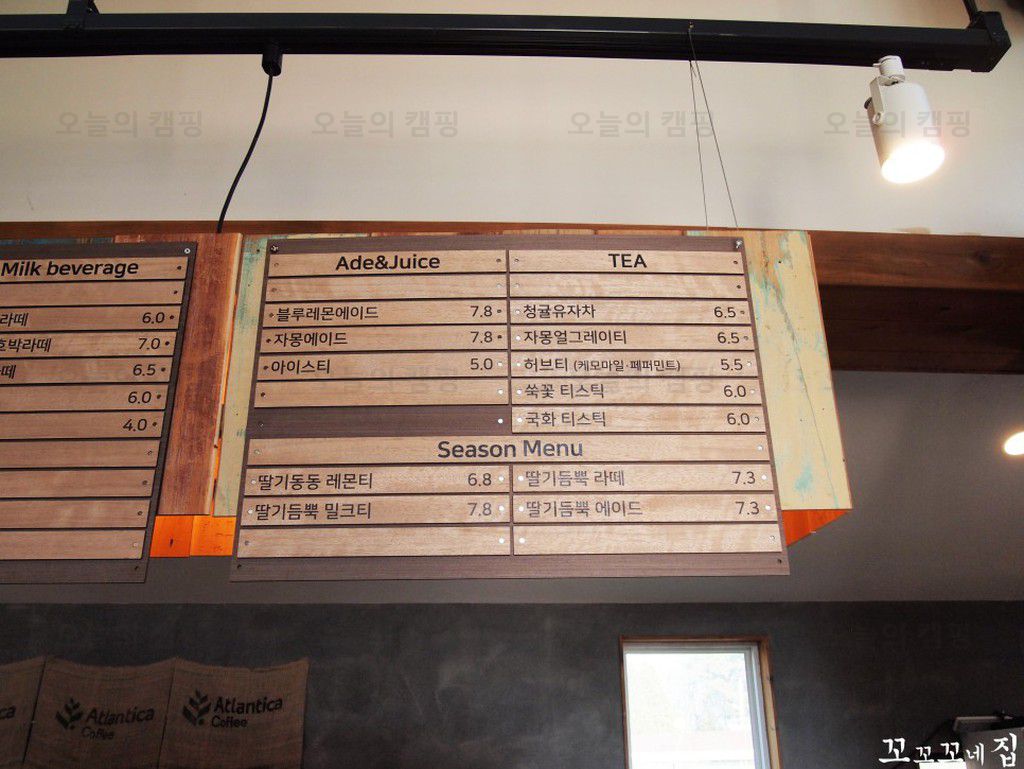 오늘의 캠핑 오늘의 캠핑 오늘의 캠핑 오늘의 캠핑
Milk beverage
라떼 6.0
호박라떼 7.0
라떼 6.5
6.0
4.0
Ade&Juice
블루레몬에이드 7.8
자몽에이드 7.8
아이스티 5.0
TEA
청귤유자차 6.5
자몽얼그레이티 6.5
허브티 (케모마일·페퍼민트) 5.5
쑥꽃 티스틱 6.0
국화 티스틱 6.0
Season Menu
딸기동동 레몬티 6.8
딸기듬뿍 밀크티 7.8
딸기듬뿍 라떼 7.3
딸기듬뿍 에이드 7.3
Atlantica
Coffee
Atlantica
Coffee
꼬꼬꼬네 집